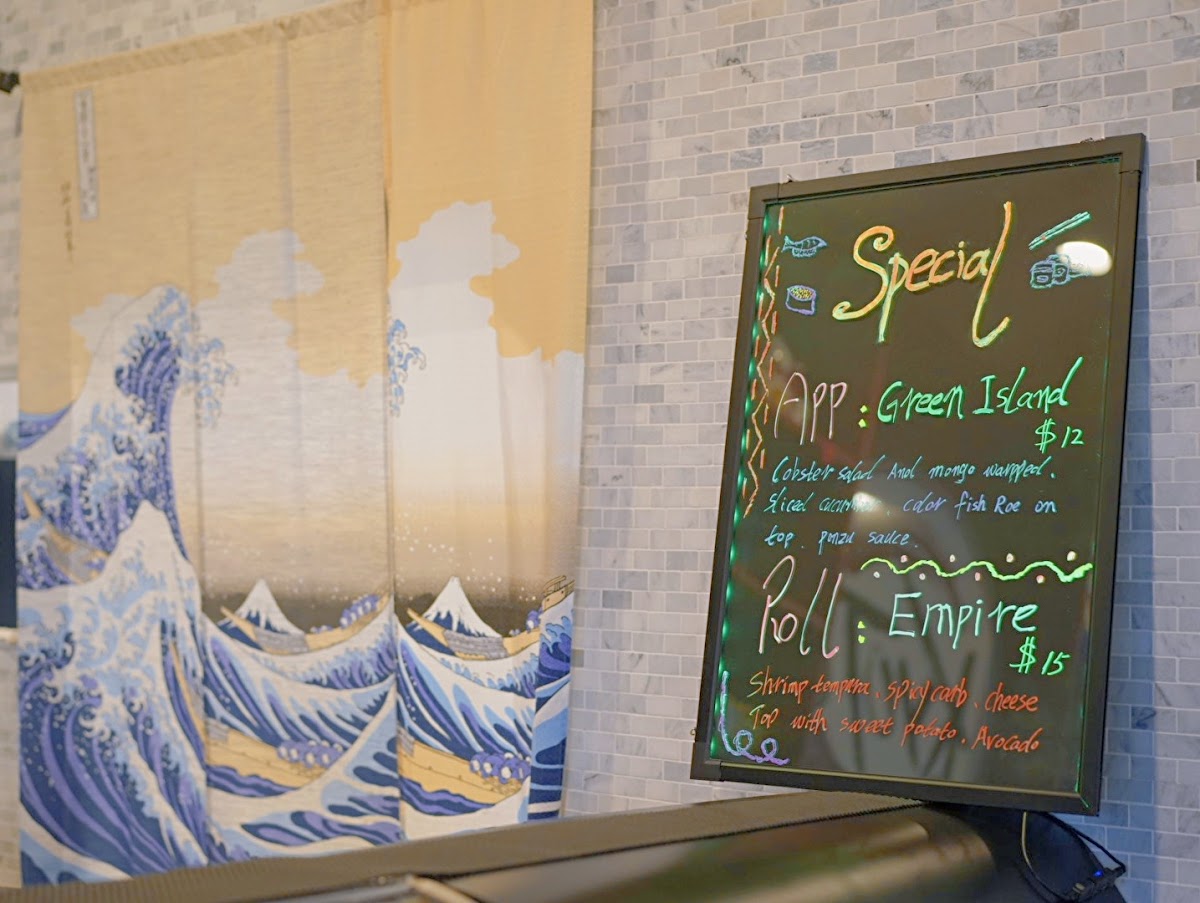 Special
App : Green Island
$12
Lobster salad And mongo warpped.
Sliced . color fish Roe on
top. ponzu sauce.
Roll : Empire
$15
Shrimp tempera. spicy carb. cheese
Top with sweet potato. Avocado